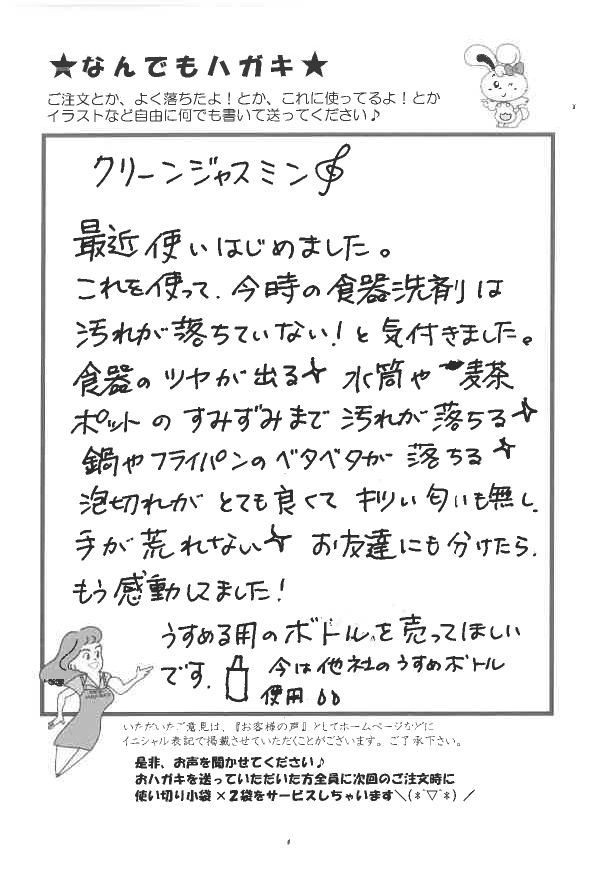 ★なんでもハガキ★
ご注文とか、よく落ちたよ！とか、これに使ってるよ！とか
イラストなど自由に何でも書いて送ってください♪
クリーンジャスミン
最近使いはじめました。
これを使って、今時の食器洗剤は
汚れが落ちていない！と気付きました。
食器のツヤが出る☆ 水筒や麦茶
ポットのすみずみまで汚れが落ちる☆
鍋やフライパンのベタベタが落ちる☆
泡切れがとても良くてキツい匂いも無し、
手が荒れない☆ お友達にも分けたら、
もう感動してました！
うすめる用のボトルを売ってほしい
です。 今は他社のうすめボトル
使用
いただいたご意見は、『お客様の声』としてホームページなどに
イニシャル表記で掲載させていただくことがございます。ご了承下さい。
是非、お声を聞かせてください♪
おハガキを送っていただいた方全員に次回のご注文時に
使い切り小袋×２袋をサービスしちゃいます＼(*ˆ▽ˆ*)／